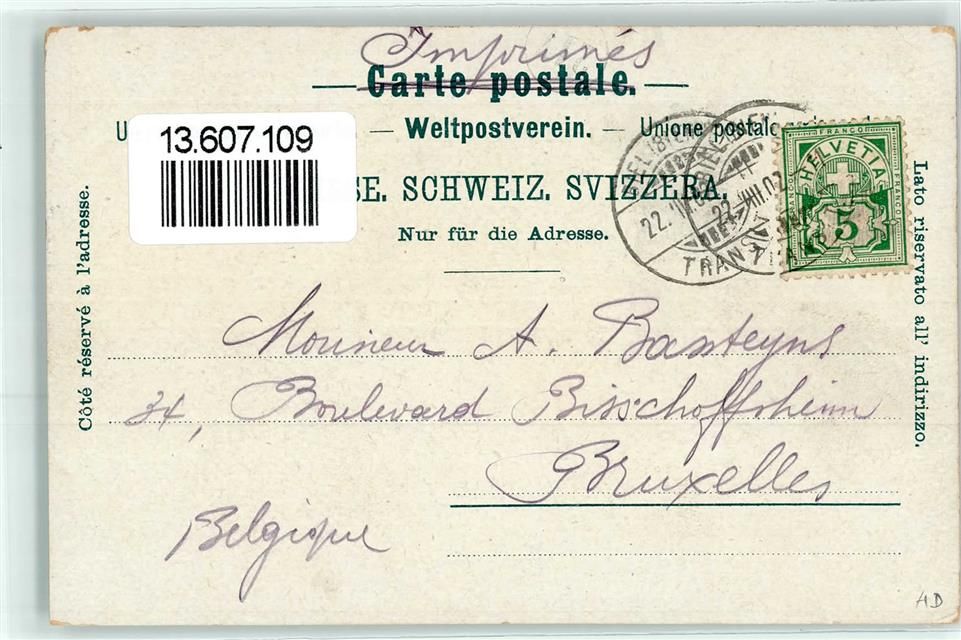 Imprimés
Carte postale.
13.607.109
Weltpostverein. — Unione postale
SE. SCHWEIZ. SVIZZERA.
Nur für die Adresse.
Côté réservé à l'adresse.
Lato riservato all' indirizzo.
FRANCO
HELVETIA
FRANCO
FRANCO
5
22. VIII. 02
TRANS
Monsieur A. Basteyns
34, Boulevard Bisschoffsheim
Bruxelles
Belgique
HD